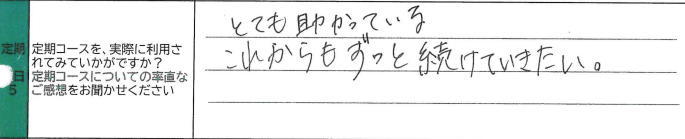 定期
日
5
定期コースを、実際に利用さ
れてみていかがですか？
定期コースについての率直な
ご感想をお聞かせください
とても助かっている
これからもずっと続けていきたい。